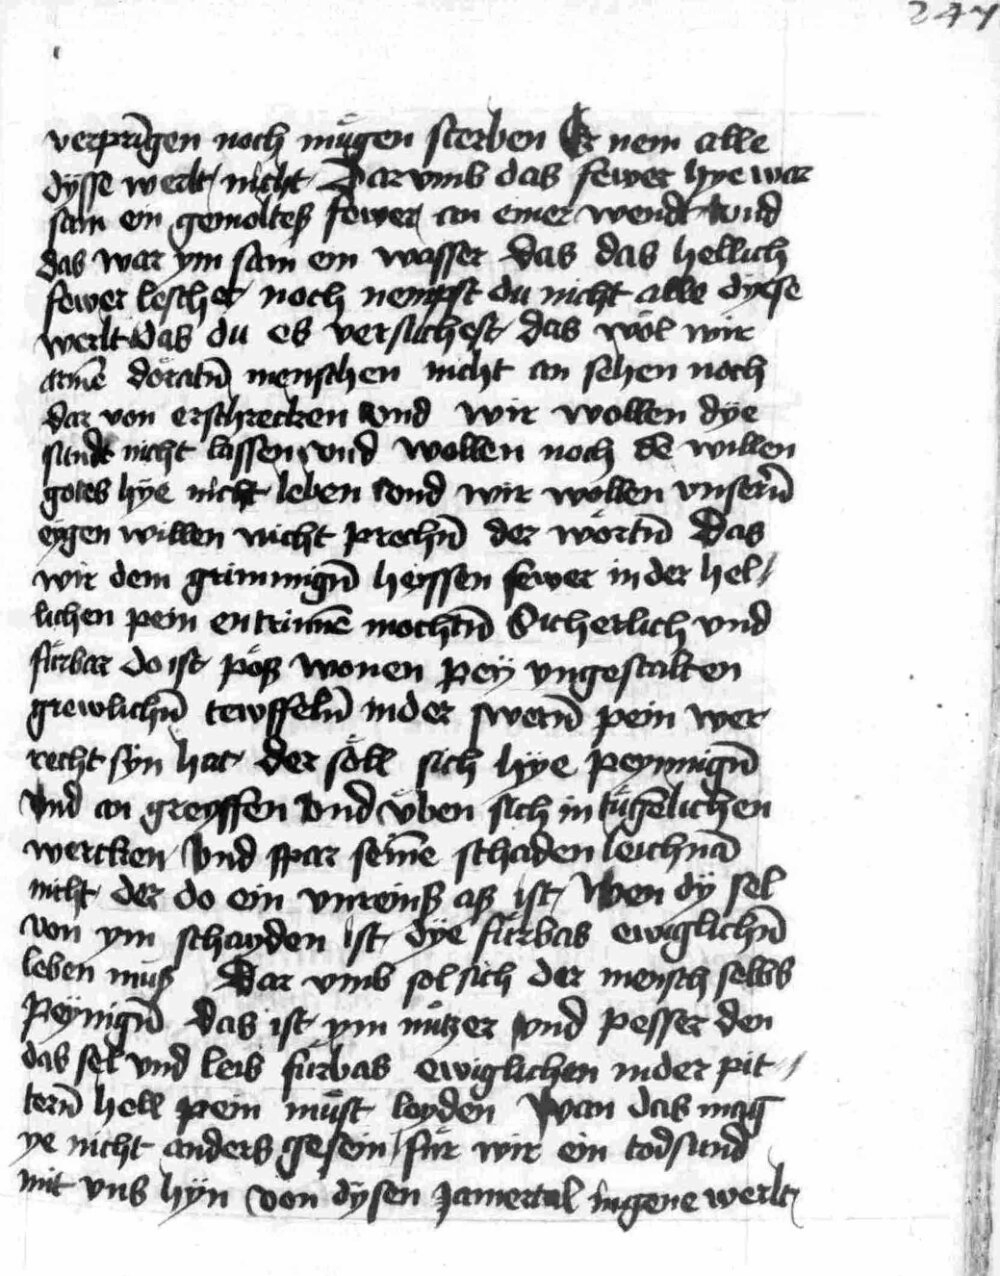 247
verpringen noch mügen sterben Er nem alle
dysse werlt nicht Dar vmb das fewer hye war
sam ein gemoltes fewer an einer wendt vnd
das war ym sam ein wasser das das hellich
fewer leschet noch nempst du nicht alle dyese
werlt das du es versuchest das wöl wir
arme̅ döratn̅ menschen nicht an sehen noch
dar von erschrecken vnd wir wollen dye
sundt nicht lassen vnd wollen noch de̅ willen
gotes hye nicht leben vnd wir wollen vnsern̅
eygen willen nicht prechn̅ der wörtn̅ Das
wir dem grimmign̅ heyssen fewer in der hel/
lichen pein entrinne̅ mochtn̅ Sicherlich vnd
fürbar do ist pöß wonen pey vngestalten
grewlichn̅ tewffeln̅ in der swern̅ pein wer
recht syn hat der söll sich hye peynnign̅
Vnd an greyffen Vnd vben sich in tügelichen
wercken Vnd spar seine̅ schaden leichna̅
nicht der do ein vnreinß aß ist Wen dy sel
von ym schayden ist dye fürbas ewiglichn̅
leben muß Dar vmb sol sich der mensch selbs
Peynign̅ das ist ym nützer vnd pesser den
das sel vnd leib furbas ewiglichen in der pit/
tern̅ hell pein müst leyden Wan das mag
ye nicht anders gesein für wir ein todsund
mit vns hyn von dysen Jamertal in gene werlt